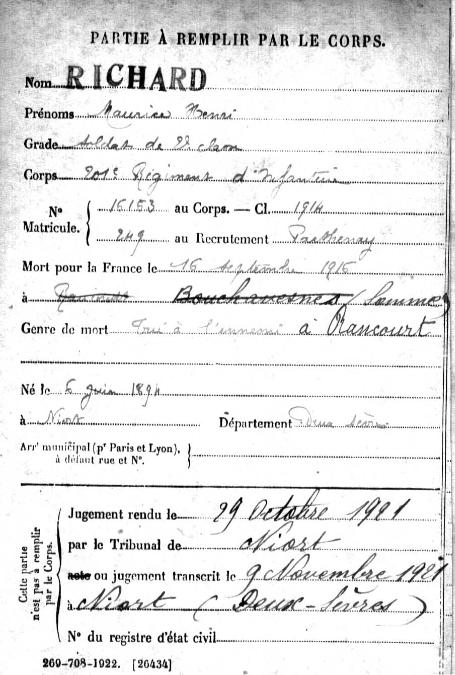 PARTIE À REMPLIR PAR LE CORPS.
Nom RICHARD
Prénoms Maurice Henri
Grade soldat de 2e classe
Corps 201e Régiment d'Infanterie
No Matricule. { 16153 au Corps. — Cl. 1914
249 au Recrutement Parthenay
Mort pour la France le 16 septembre 1916
à Rancourt Bouchavesnes (Somme)
Genre de mort Tué à l'ennemi à Rancourt
Né le 6 juin 1894
à Niort Département Deux Sèvres
Arrt municipal (pr Paris et Lyon), à défaut rue et No. {
Cette partie n'est pas à remplir par le Corps.
Jugement rendu le 29 Octobre 1921
par le Tribunal de Niort
acte ou jugement transcrit le 9 Novembre 1921
à Niort (Deux-Sèvres)
No du registre d'état civil
269-708-1922. [26434]